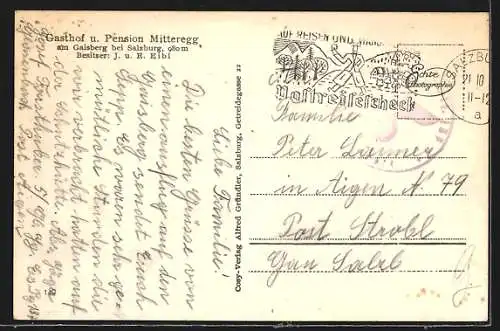 Gasthof u. Pension Mitteregg
am Gaisberg bei Salzburg, 980m
Besitzer: J. u. E. Eibl
Liebe Familie!
Die besten Grüsse von
einem Ausflug auf den
Gaisberg sendet Euch
Seppi. Es waren sehr ge-
mütliche Stunden die
wir verbracht hatten auf
der Schutzhütte.
Josef
Post
Cosy-Verlag Alfred Gründler, Salzburg, Getreidegasse 22
AUF REISEN UND
Postreisescheck
Echte
Photographie
SALZBU
21.10
11-12
a
Familie
Peter
in Aigen N. 79
Post Strobl
Gau Salzb.